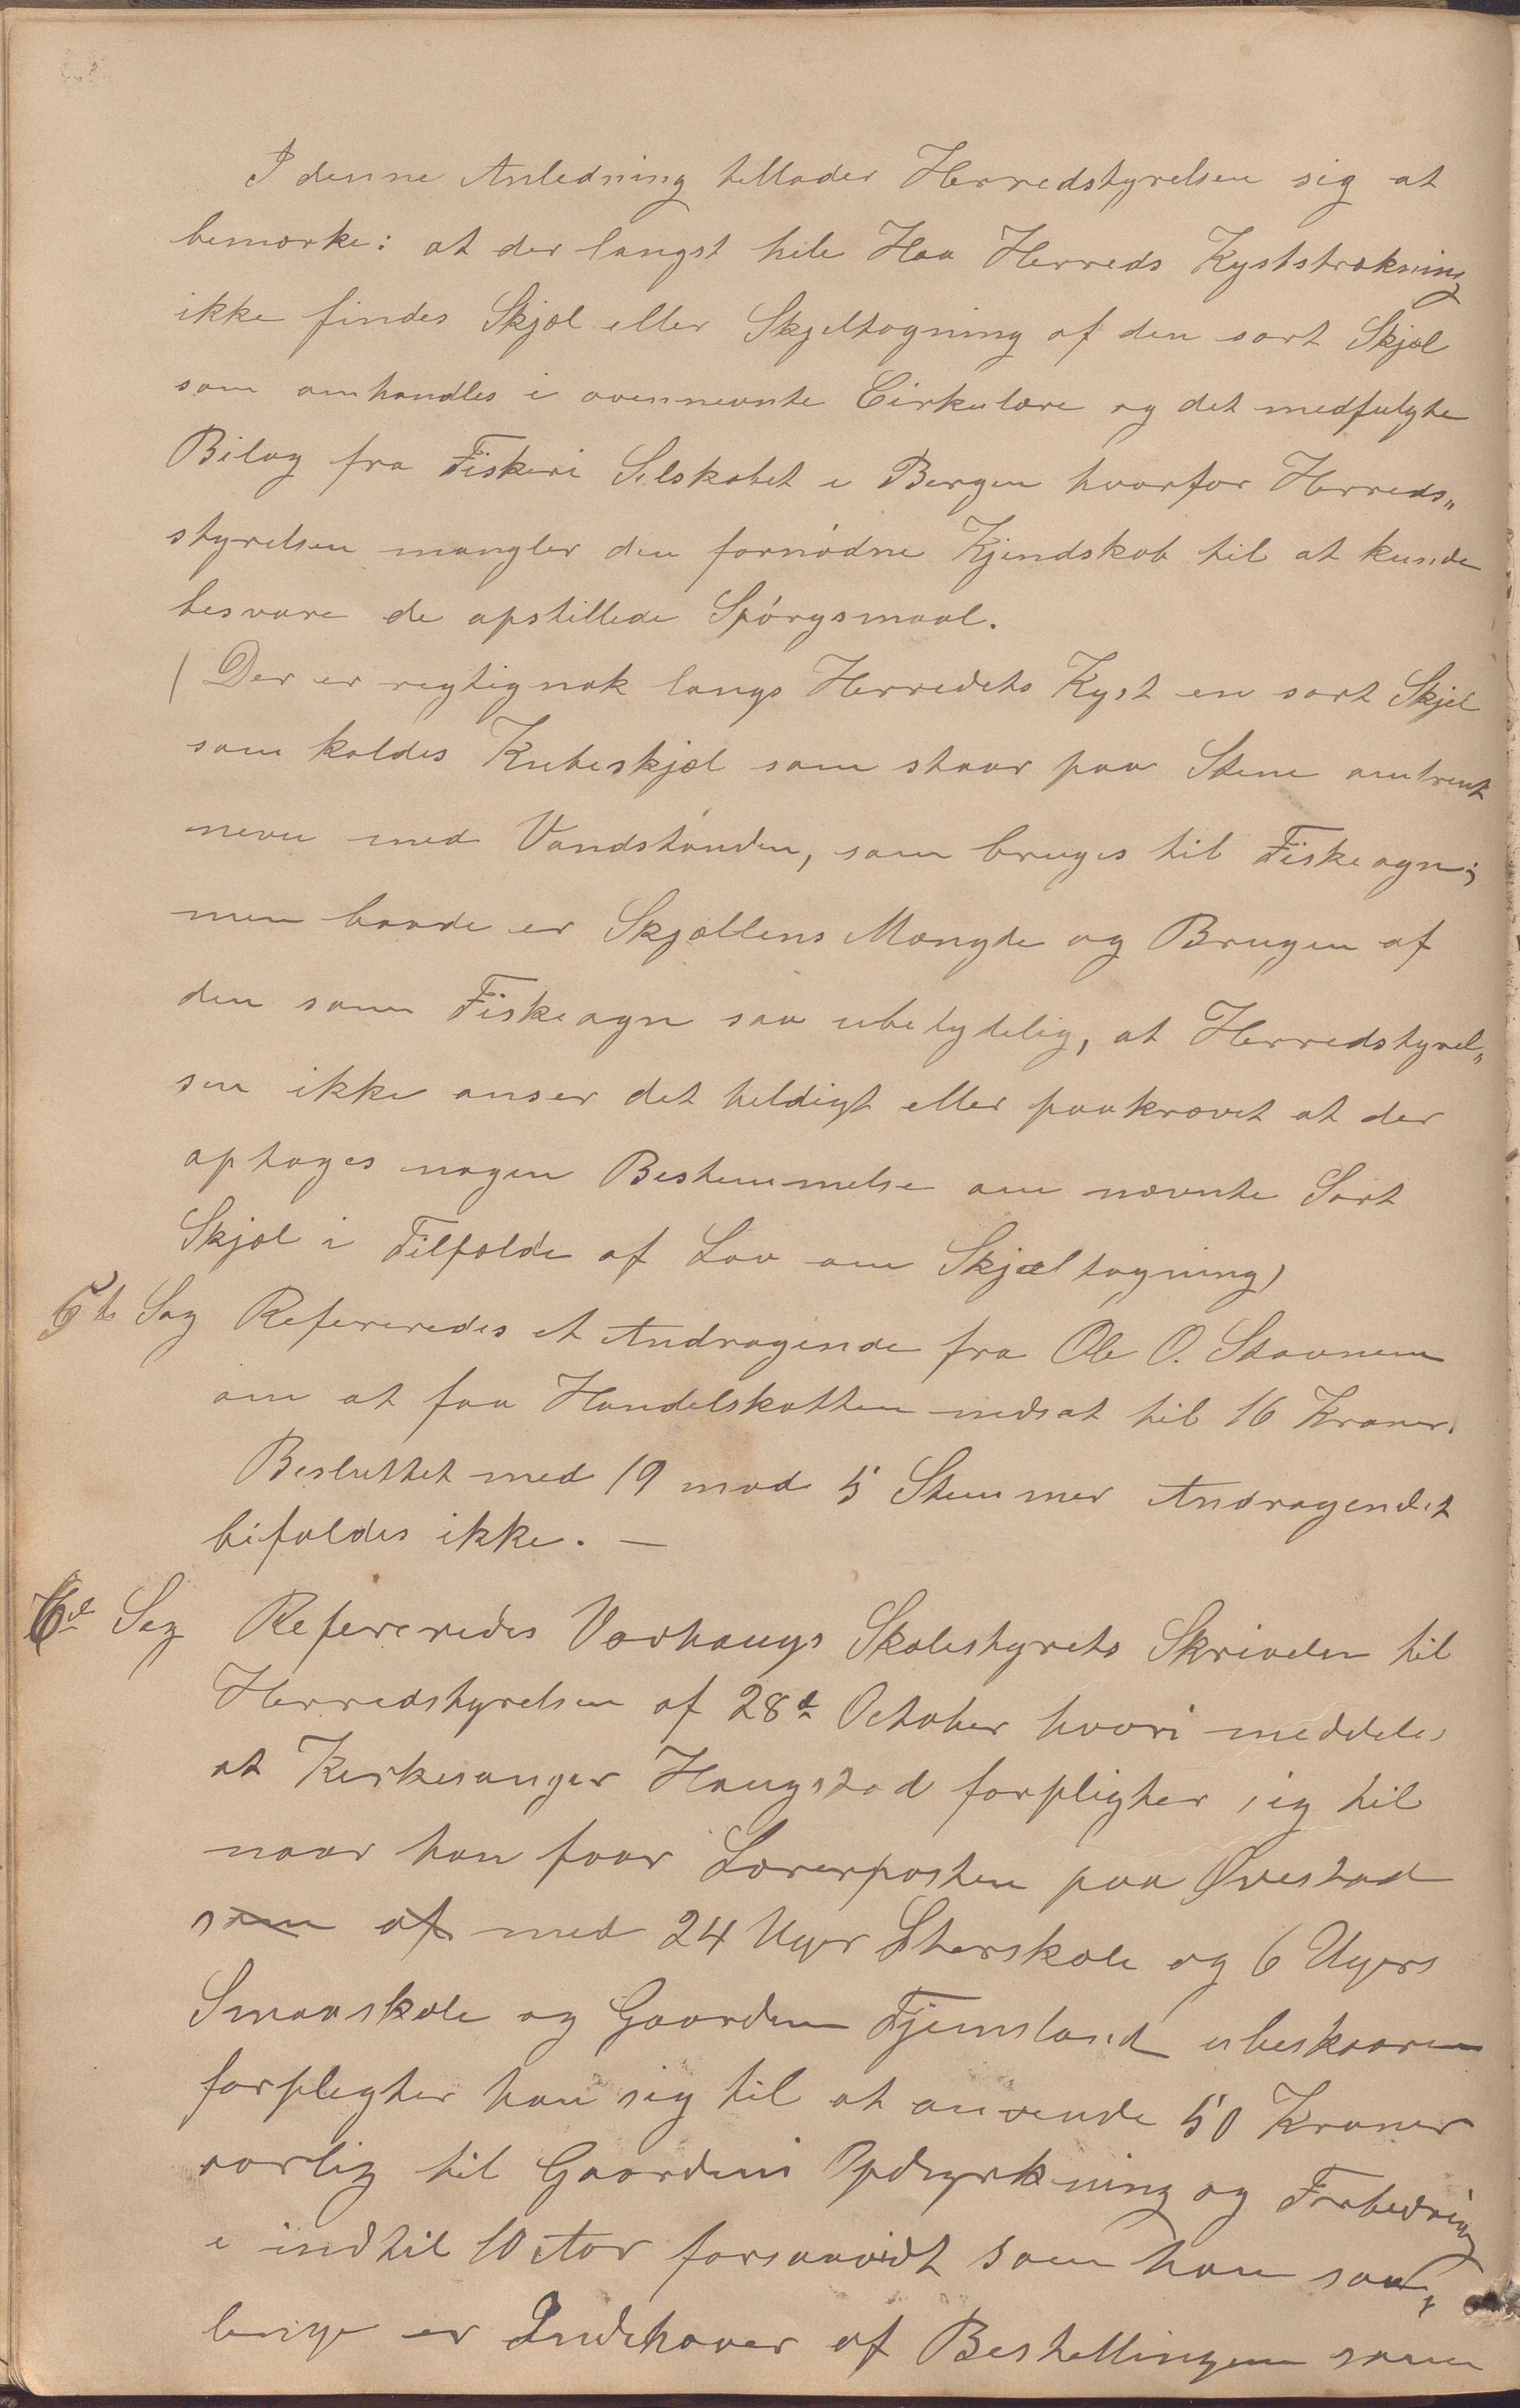 I denne Anledning tillader Herredstyrelsen sig at
bemærke: at der langst hele Haa Herreds Kyststrækning
ikke findes Skjæl eller Skjeltagning af den sort Skjæl
som omhandles i ovennevnte Cirkulære og det medfulgte
Bilag fra Fiskeri Selskabet i Bergen hvorfor Herreds„
styrelsen mangler den fornødne Kjendskab til at kunde
besvare de opstillede Spórgsmaal.
(Der er regtignok langs Herredets Kyst en sort Skjel
som kaldes Kubeskjæl som staar paa Stene omtrent
nevn med Vandstanden, som bruges til Fiskeagn;
men baade er Skjællens Mængde og Brugen af
den som Fiskeagn saa ubetydelig, at Herredstyrel„
sen ikke anser det heldigt eller paakrævet at der
optages nogen Bestemmelse om nævnte Sort
Skjæl i Tilfælde af Lov om Skjæltagning)
5te Sag Refereredes et Andragende fra Ole O. Stavnem
om at faa Handelskatten nedsat til 16 Kroner.
Besluttet med 19 mod 5 Stemmer Andragendet
bifaldes ikke. —
6te Sag Refereredes Varhaugs Skolestyrets Skrivelse til
Herredstyrelsen af 28de October hvori meddeles
at Kirkesanger Haugstad forpligter sig til
naar han faar Lærerposten paa Øvestad
som af med 24 Uger Storskole og 6 Ugers
Smaaskole og Gaarden Tjemsland ubeskaaren
forpligter han sig til at anvende 50 Kroner
aarlig til Gaardens Opdyrkning og Forbedring
i indtil 10 Aar forsaavidt som han saa„
lenge er Indehaver af Bestellingen som